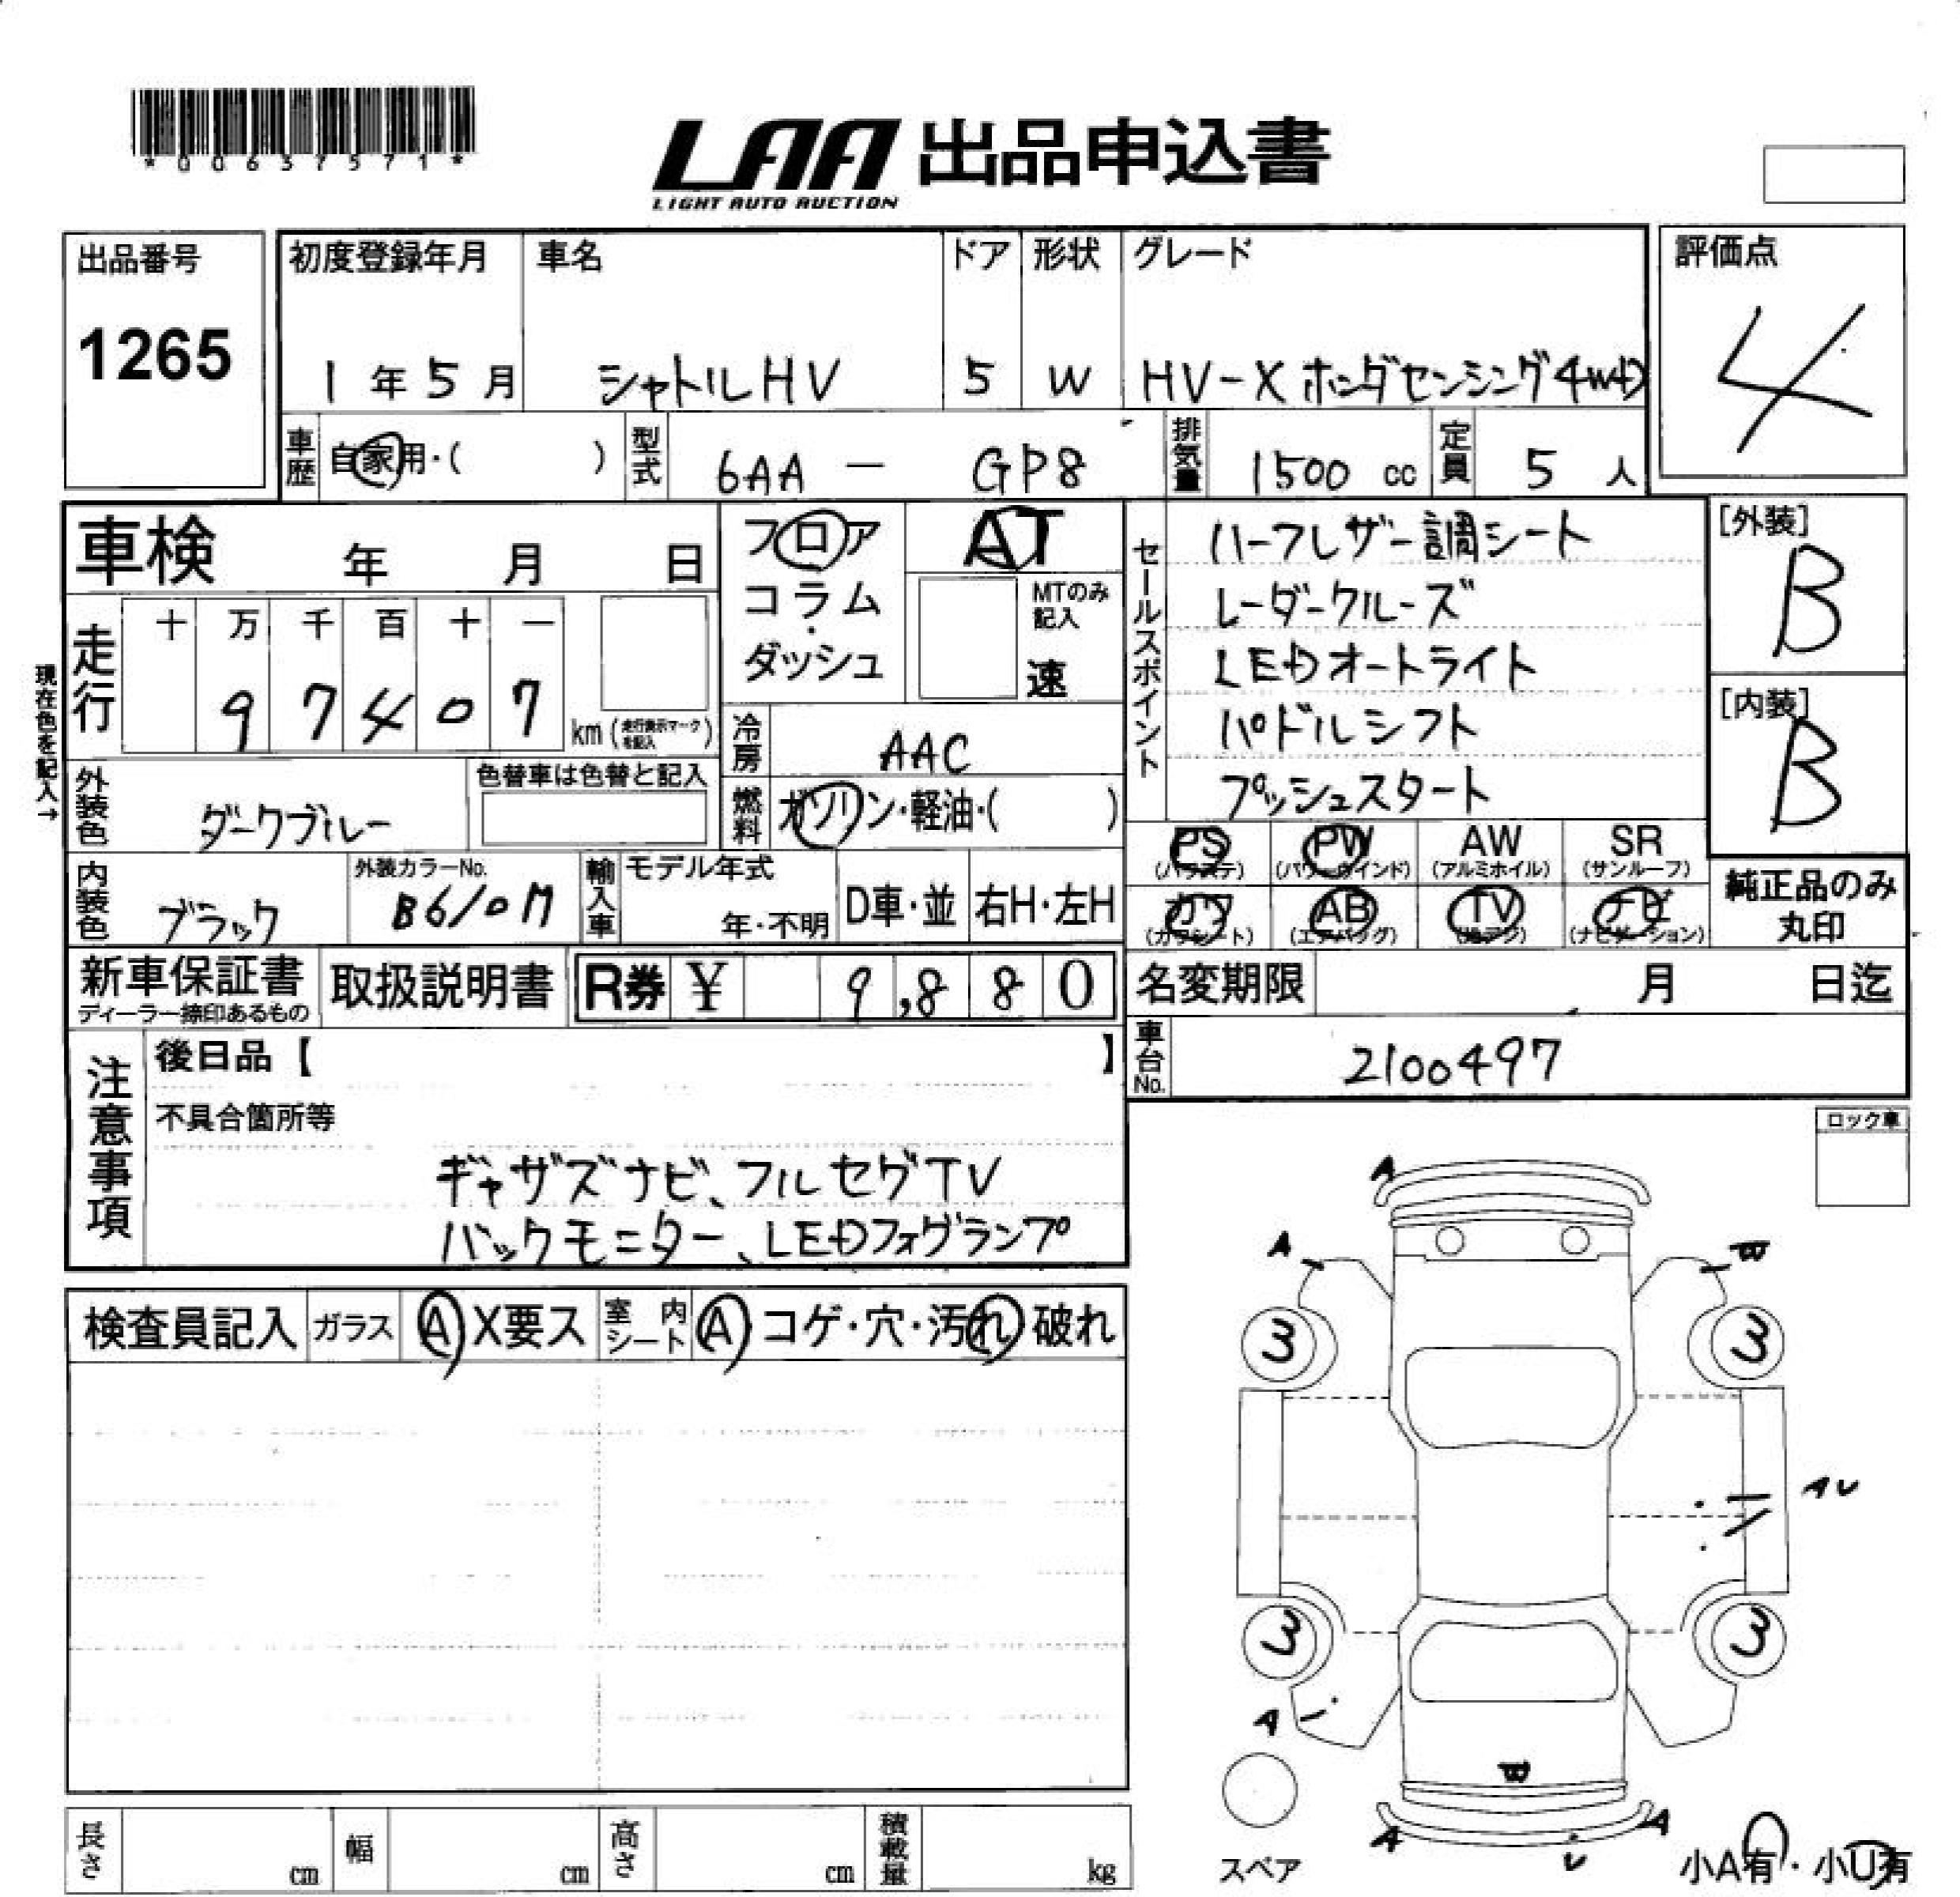 *00637571*
LAA 出品申込書
LIGHT AUTO AUCTION
出品番号
1265
初度登録年月
1年5月
車名
シャトルHV
ドア
5
形状
W
グレード
HV-X ホンダセンシング4WD
評価点
4
車歴
自家用・( )
型式
6AA - GP8
排気量
1500 cc
定員
5 人
車検 年 月 日
現在色を記入→
走行
十 万 千 百 十 一
9 7 4 0 7
km (走行表示マークを記入)
フロア
コラム
・
ダッシュ
AT
MTのみ
記入
速
冷房
AAC
燃料
ガソリン・軽油・( )
外装色
ダークブルー
色替車は色替と記入
内装色
ブラック
外装カラーNo.
B610M
輸入車
モデル年式
年・不明
D車・並
右H・左H
セールスポイント
ハーフレザー調シート
レーダークルーズ
LEDオートライト
パドルシフト
プッシュスタート
[外装]
B
[内装]
B
PS
(パワステ)
PW
(パワーウインド)
AW
(アルミホイル)
SR
(サンルーフ)
カワ
(カワシート)
AB
(エアバッグ)
TV
(地デジ)
ナビ
(ナビゲーション)
純正品のみ
丸印
新車保証書
ディーラー締印あるもの
取扱説明書
R券 ¥ 9,880
名変期限 月 日迄
車台No.
2100497
注意事項
後日品【 】
不具合箇所等
ギャザズナビ、フルセグTV
バックモニター、LEDフォグランプ
ロック車
検査員記入
ガラス
A X要ス
室内シート
A コゲ・穴・汚れ 破れ
A
A
B
3
3
AU
3
3
A
B
A
U
A
スペア
小A有・小U有
長さ
cm
幅
cm
高さ
cm
積載量
kg